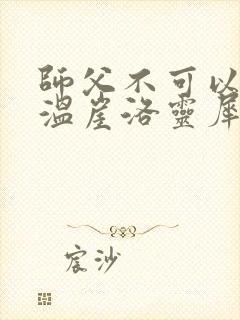 師父不可以
溫崖洛靈犀
宸沙